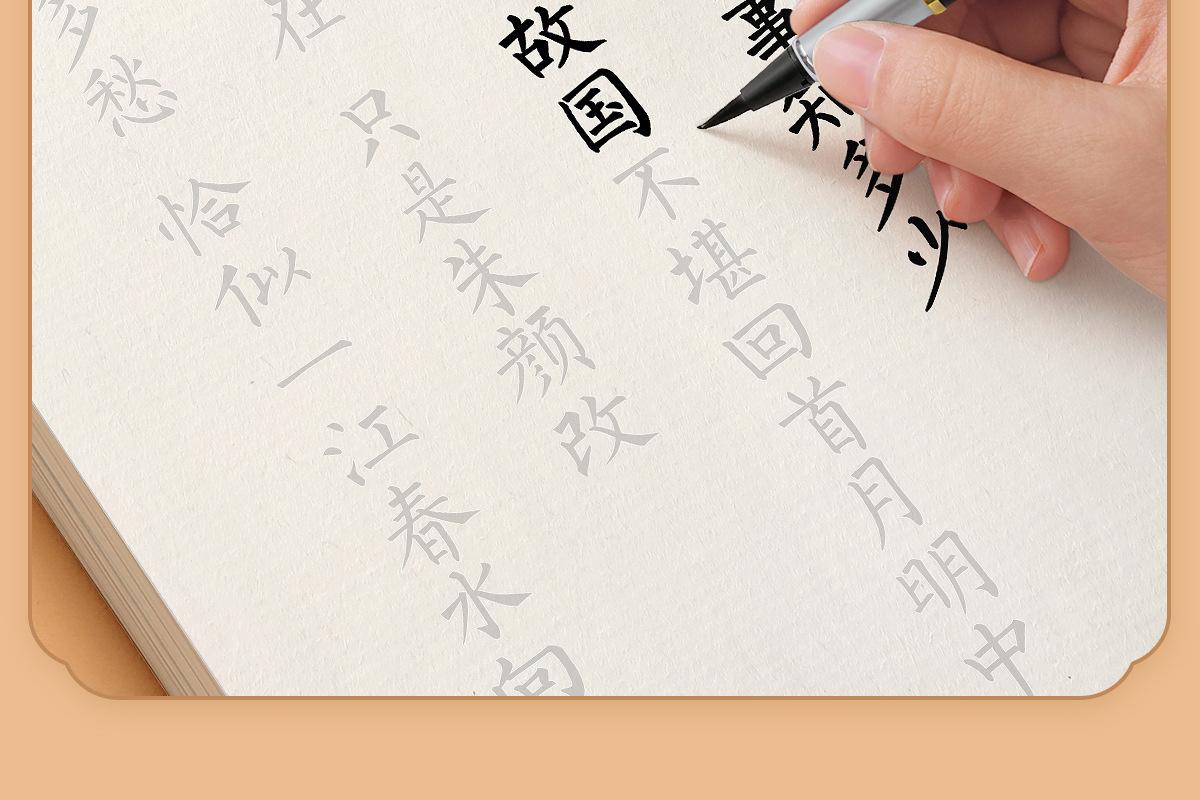 事知多少
故国不堪回首月明中
在
只是朱颜改
多愁
恰似一江春水向